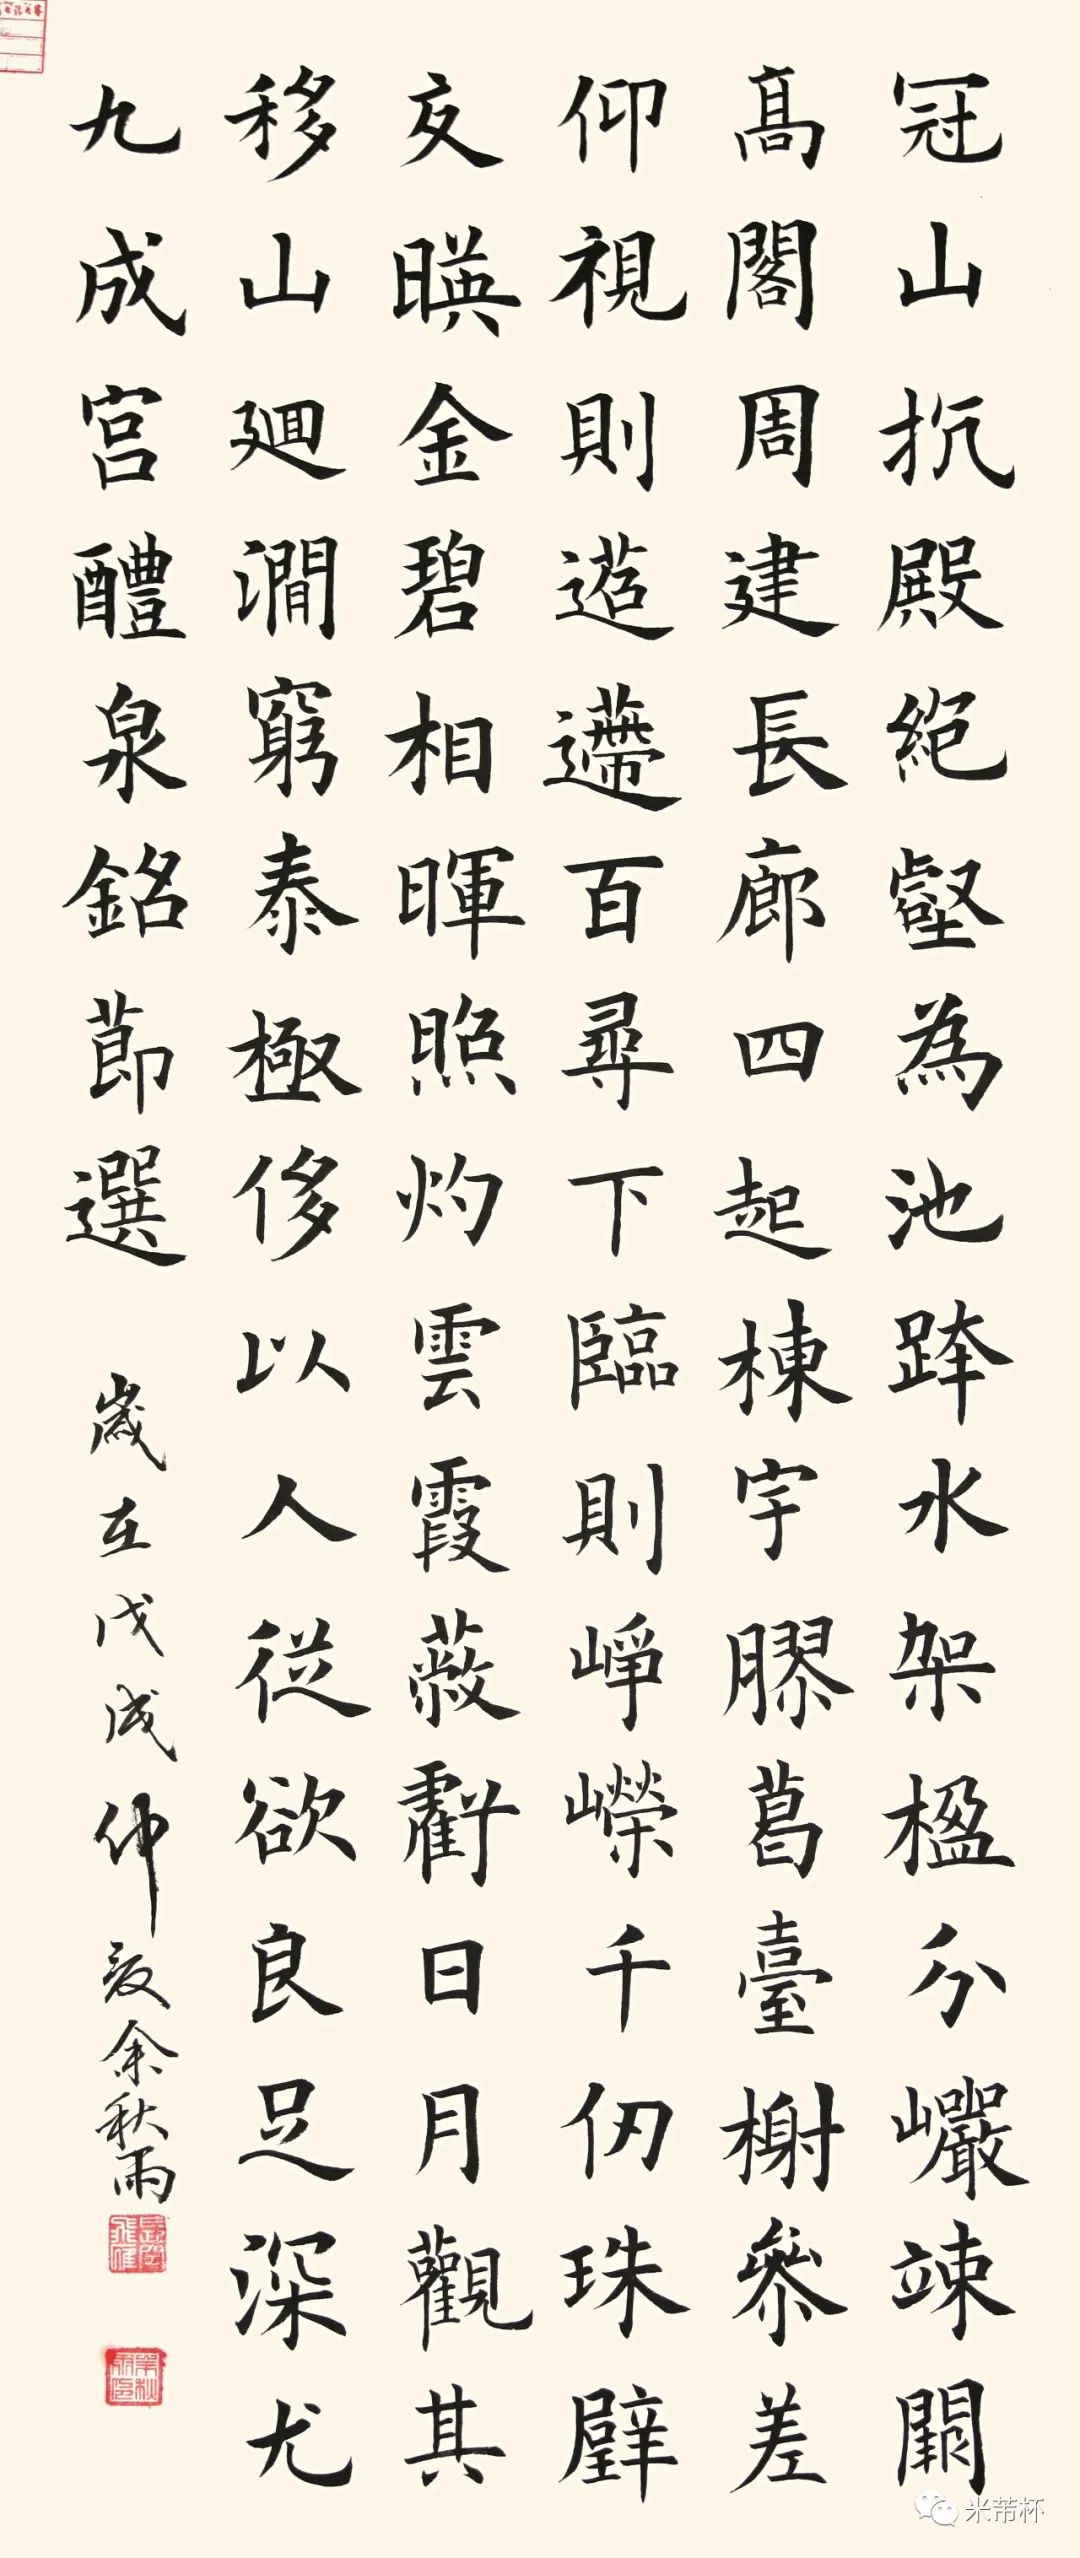 冠山抗殿絕壑為池跨水架楹分巖竦闕
高閣周建長廊四起棟宇膠葛臺榭參差
仰視則迢遰百尋下臨則崢嶸千仞珠璧
交暎金碧相暉照灼雲霞蔽虧日月觀其
移山迴澗窮泰極侈以人從欲良足深尤
九成宮醴泉銘節選
歲在戊戌仲夏余秋雨
米芾杯